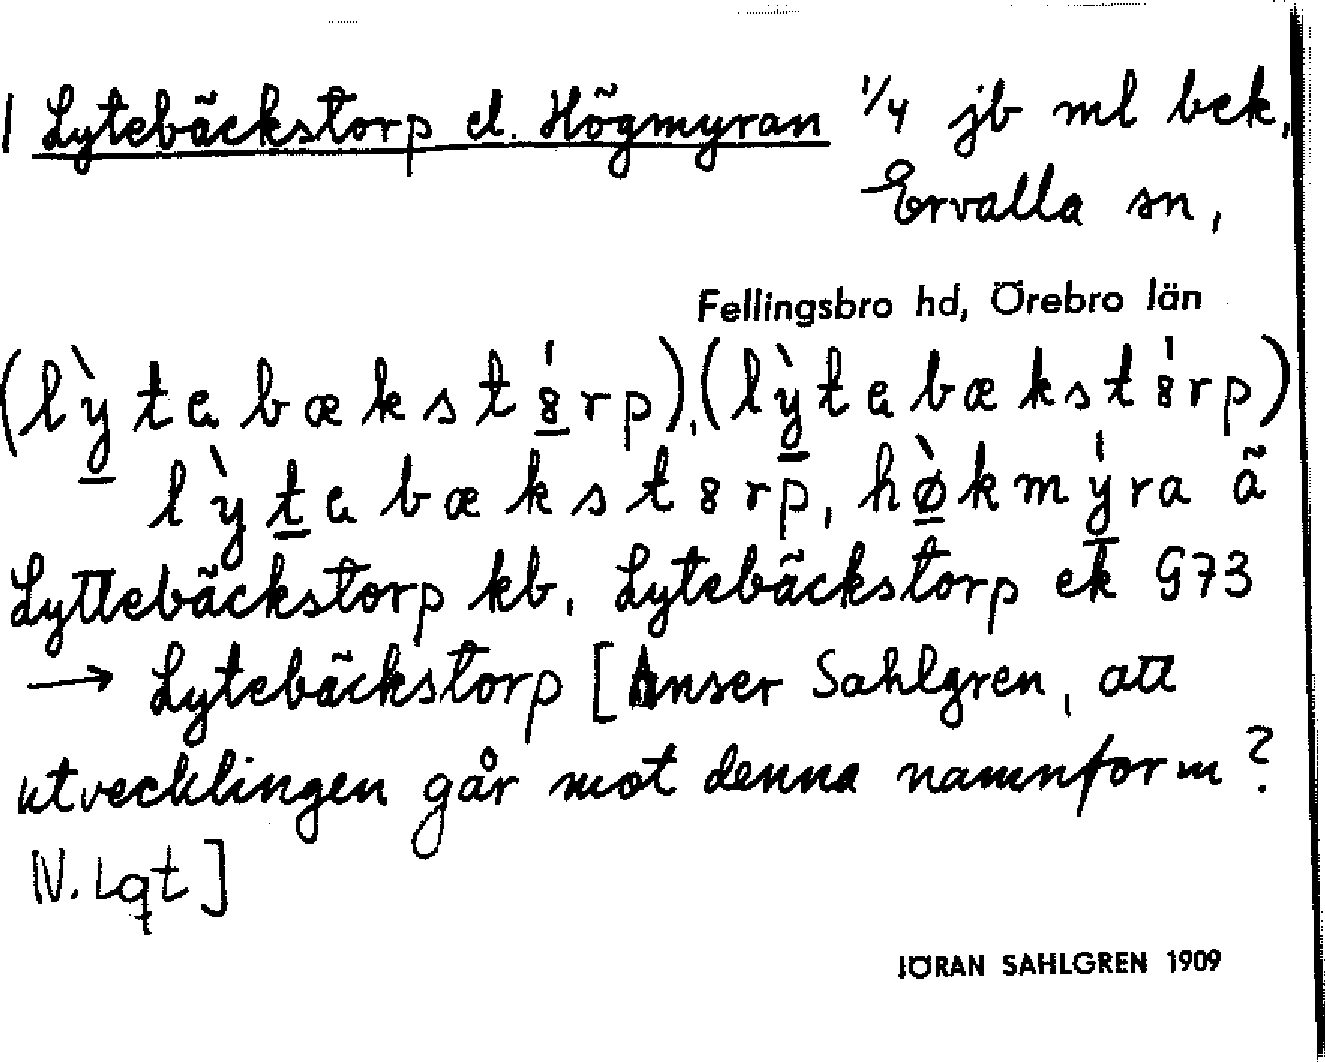 1 Lytebäckstorp el. Högmyran 1/4 jb ml bek,
Ervalla sn,
Fellingsbro hd, Örebro län
(lỳtabækstȣ́rp), (lỳtabækstȣ́rp)
lỳtabækstȣrp, hø̀kmýra ã
Lyttebäckstorp kb, Lytebäckstorp ek G73
→ Lytebäckstorp [Anser Sahlgren, att
utvecklingen går mot denna namnform?
N. Lqt]
JÖRAN SAHLGREN 1909